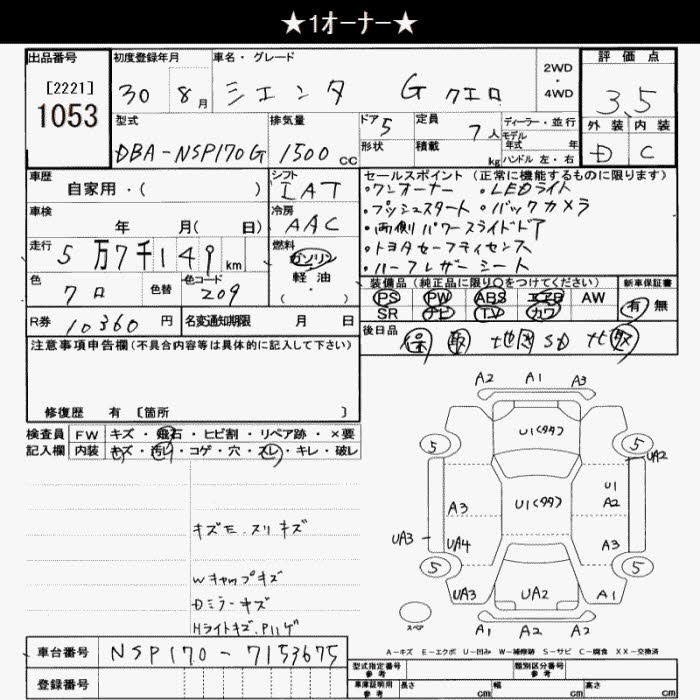 ★1オーナー★
出品番号
[2221]
1053
初度登録年月
30 8月
車名・グレード
シエンタ G クエロ
2WD
・
4WD
評価点
3.5
外装 内装
D C
型式
DBA-NSP170G
排気量
1500 cc
ドア 5
形状
定員 7人
積載 kg
ディーラー・並行
モデル
年式 年
ハンドル 左・右
車歴
自家用・( )
シフト
IAT
車検
年 月( 日)
冷房
AAC
走行
5万7千149km
燃料
ガソリン
軽油
・
色
クロ
色替
色コード
209
R券 10360円
名変通知期限 月 日
セールスポイント (正常に機能するものに限ります)
・ワンオーナー ・LEDライト
・プッシュスタート ・バックカメラ
・両側パワースライドドア
・トヨタセーフティセンス
・ハーフレザーシート
装備品(純正品に限り○をつけてください)
PS PW ABS エアB AW
SR ナビ TV カワ
新車保証書
有 無
後日品
保 取 地図SD
注意事項申告欄(不具合内容等は具体的に記入して下さい)
修復歴 有 〔箇所 〕
検査員
記入欄
FW キズ・飛石・ヒビ割・リペア跡・×要
内装 キズ・汚レ・コゲ・穴・スレ・キレ・破レ
キズE.スリキズ
Wキャップキズ
Dミラーキズ
HライトキズP.ハゲ
A2 A1 A3
5 U1(タタ) 5
UA2
A3 U1(タタ) U1
A2
UA3 UA4 A3
5 5
UA3 UA2 A1
スペア
A1 A2 A2
A-キズ E-エクボ U-凹み W-補修跡 S-サビ C-腐食 XX-交換済
車台番号 NSP170-7153675
登録番号
型式指定番号
参考
類別区分番号
参考
車庫証明用
参考
長さ cm 幅 cm 高さ cm